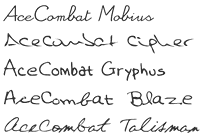 AceCombat Mobius
AceCombat Cipher
AceCombat Gryphus
AceCombat Blaze
AceCombat Talisman